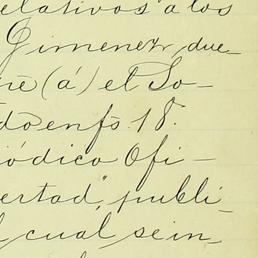 elativos a los
Gimenez, due-
ne (á) el So-
do en fs. 18.
iódico Ofi-
ertad", publi-
cual se in-